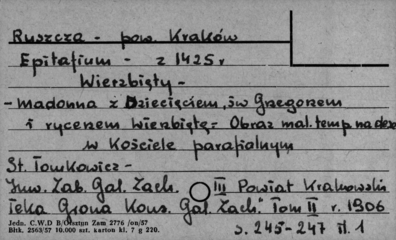 Ruszcza - pow. Kraków
Epitafium - z 1425 r
Wierzbięty -
- Madonna z Dziecięciem, św Grzegorzem
i rycerzem Wierzbiętą - Obraz mal. temp na desce
w Kościele parafialnym
St. Tomkowicz -
Inw. Zab. Gal. Zach. III Powiat Krakowski
Teka Grona Kons. Gal. Zach." Tom II r. 1906
s. 245-247 il. 1
Jedn. C.W.D B/Olsztyn Zam 2776 /on/57
Bltk. 2563/57 10.000 szt. karton kl. 7 g 220.